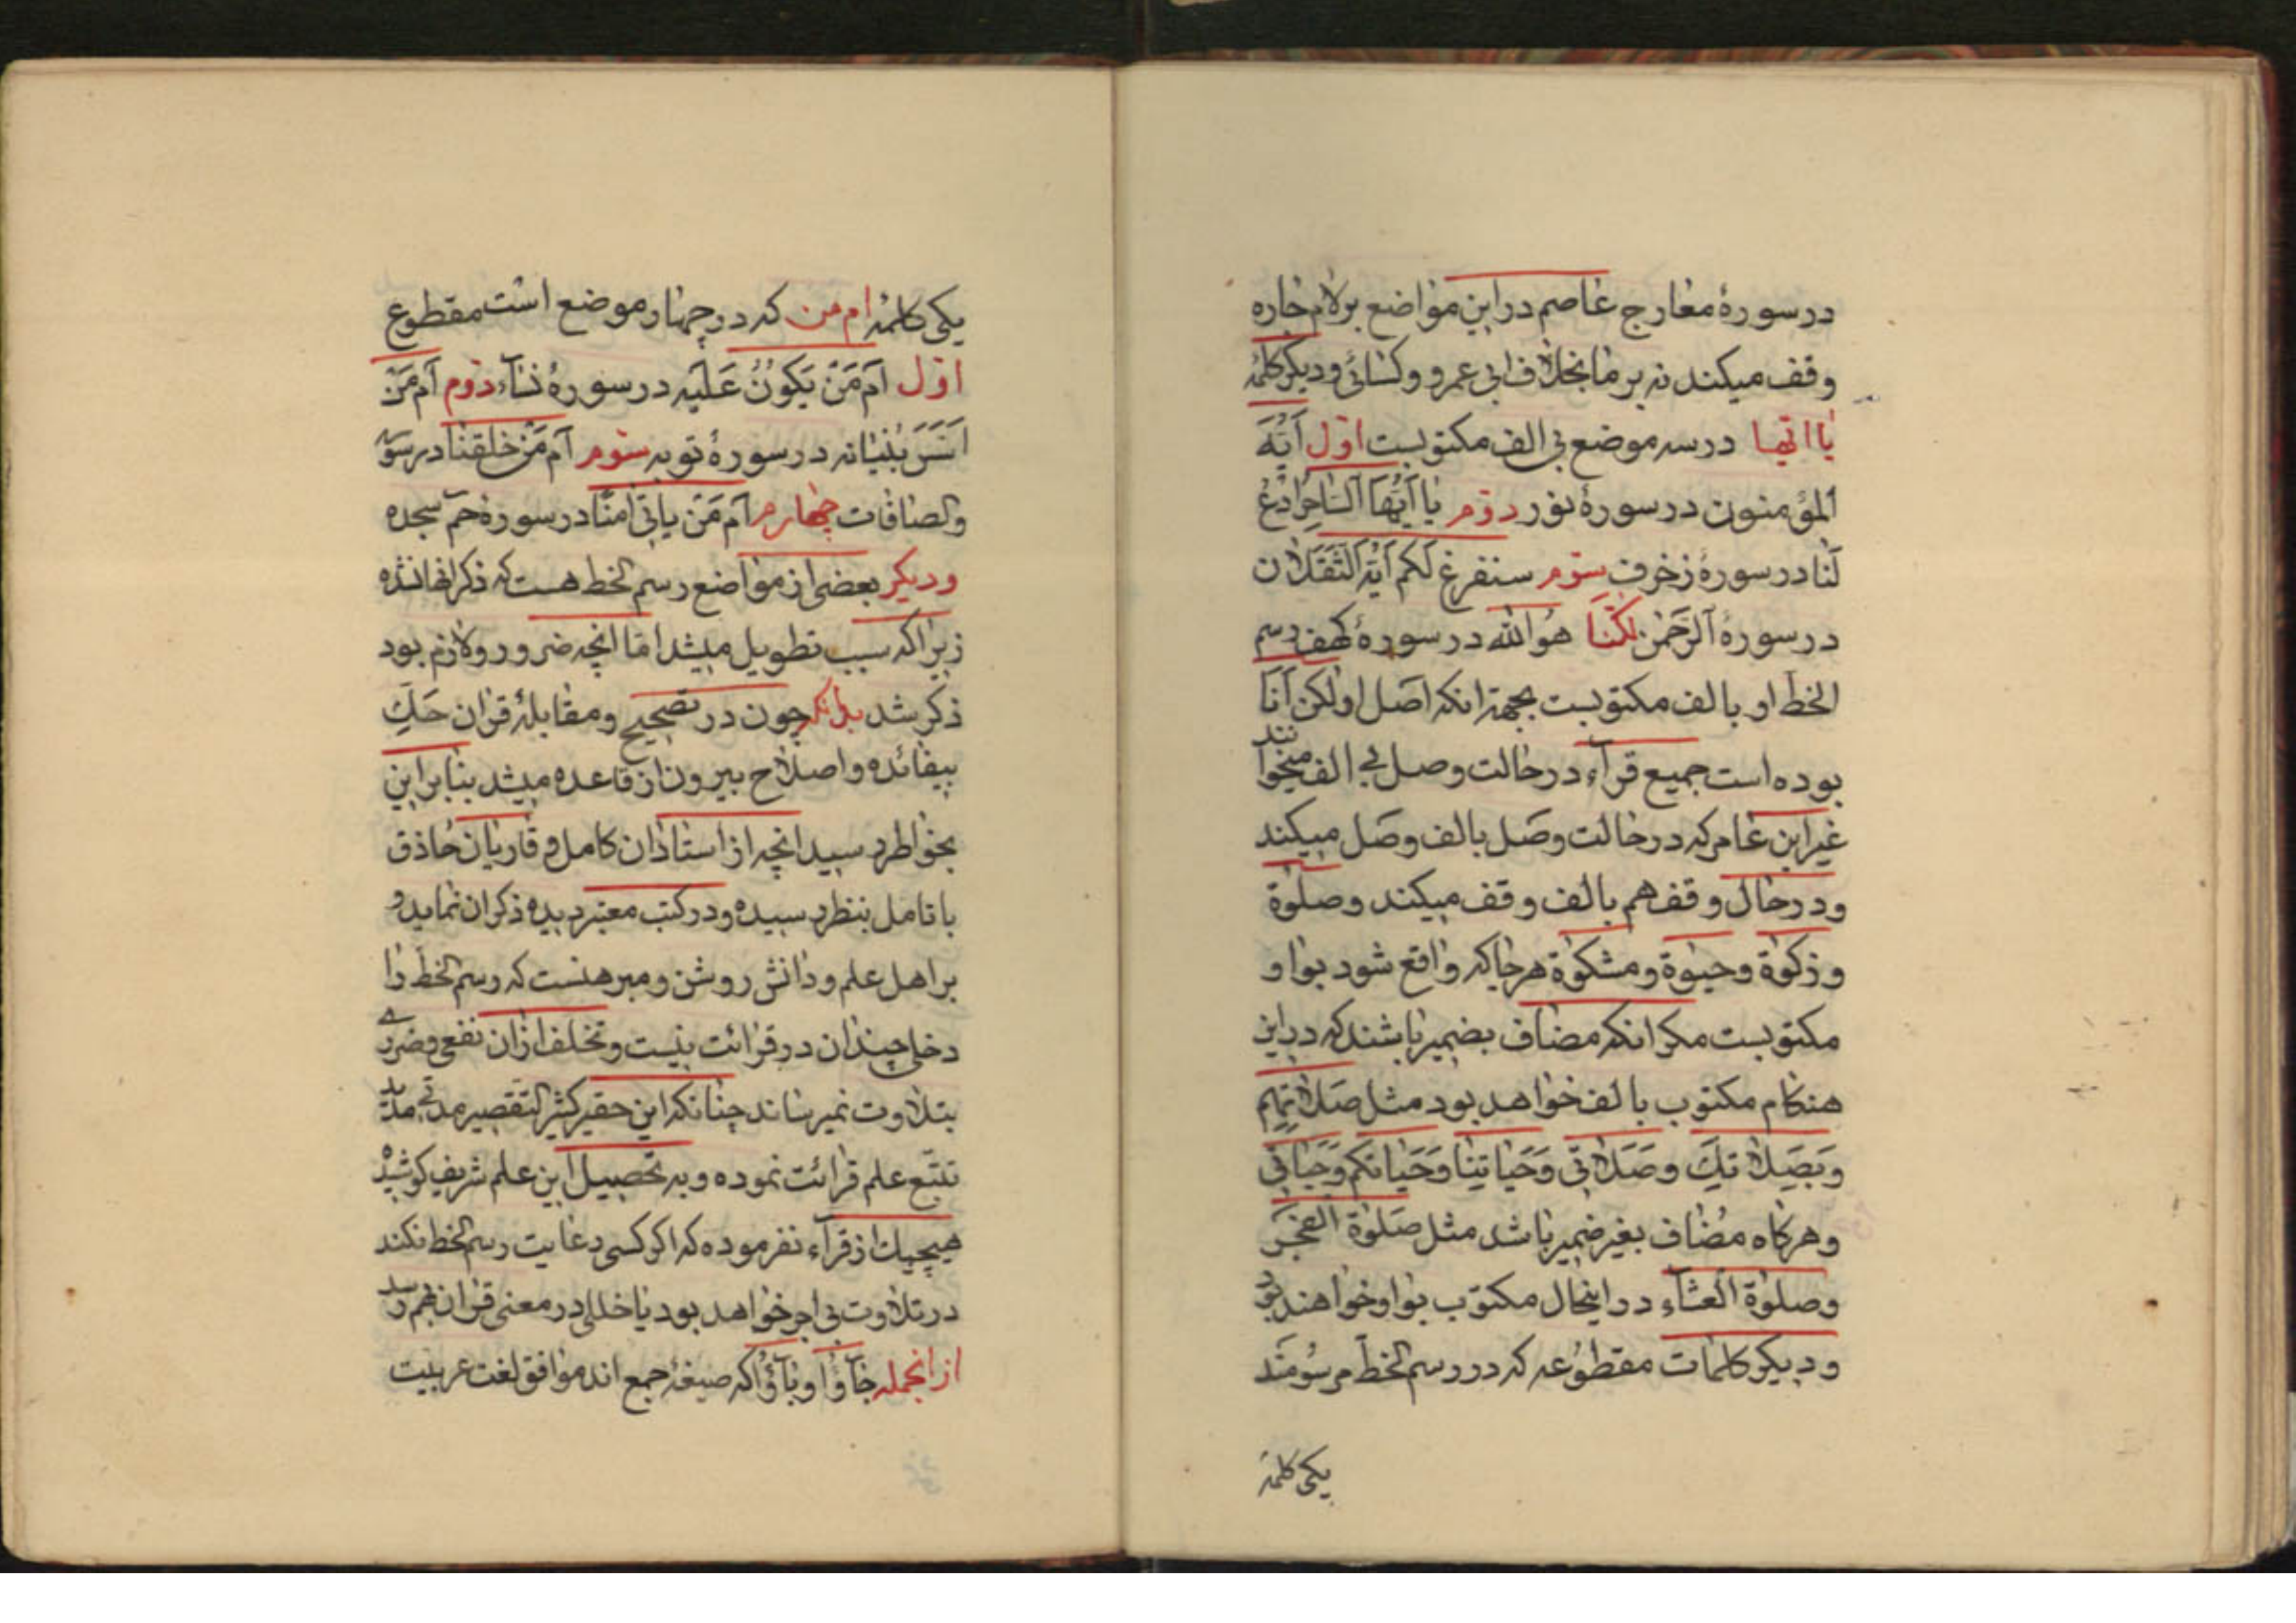 در سورۀ معارج عاصم در این مواضع بر لام جاره
وقف میکند نه بر ما بخلاف ابی عمرو و کسائی و دیکر کلمۀ
یا ایها در سه موضع بی الف مکتوبست اول اَیُّهَ
المؤمنون در سورۀ نور دوم یا اَیُّهَ الساحر ادع
لنا در سورۀ زخرف سوّم سنفرغ لکم اَیُّهَ الثَّقَلان
در سورۀ الرّحمن لکنّا هو الله در سورۀ کهف رسم
الخط او بالف مکتوبست بجهة انکه اصل او لکن اَنَا
بوده است جمیع قرآء در حالت وصل بی الف میخوانند
غیر ابن عامر که در حالت وصل بالف وصل میکند
و در حال وقف هم بالف وقف میکند و صلوة
و زکوة و حیوة و مشکوة هر جا که واقع شود بواو
مکتوبست مکر انکه مضاف بضمیر باشند که در این
هنکام مکتوب بالف خواهد بود مثل صَلاتِهِم
وَبِصَلاتِكَ وصَلاتی وَحَیاتِنا وَحَیاتکم وَحَیاتی
و هرکاه مُضاف بغیر ضمیر باشد مثل صَلوة الفجر
وصلوة العشآء در اینحال مکتوب بواو خواهند بود
و دیکر کلمات مقطوعه که در رسم الخط مرسُومَند
یکی کلمۀ
یکی کلمۀ ام من که در چهار موضع است مقطوع
اوّل اَم مَنْ یَکوُنُ عَلَیه در سورۀ نسآء دوّم اَم مَنْ
اَسَّسَ بُنْیانه در سورۀ توبه سوّم اَم مَنْ خلقنا در سورۀ
والصافات چهارم اَم مَنْ یاتی امنا در سورۀ حم سجده
و دیکر بعضی از مواضع رسم الخط هست که ذکر انها نشده
زیرا که سبب تطویل میشد امّا انچه ضرور و لازم بود
ذکر شد بدانکه چون در تصحیح و مقابلۀ قران حَكِّ
بیفائده و اصلاح بیرون از قاعده میشد بنابر این
بخواطر رسید انچه از استادان کامل و قاریان حاذق
با تامل بنظر رسیده و در کتب معتبر دیده ذکر ان نماید و
بر اهل علم و دانش روشن و مبرهنست که رسم الخط را
دخلی چندان در قرائت نیست و تخلف از ان نفعی و ضرری
بتلاوت نمیرساند چنانکه این حقیر کثیر التقصیر مدتی مدید
تتبّع علم قرائت نموده و به تحصیل این علم شریف کوشیده
هیچیك از قرآء نفرموده که اکر کسی رعایت رسم الخط نکند
در تلاوت بی اجر خواهد بود یا خللی در معنی قران بهم رسد
از انجمله جآؤُا و بآؤُا که صیغۀ جمع اند موافق لغت عربیت